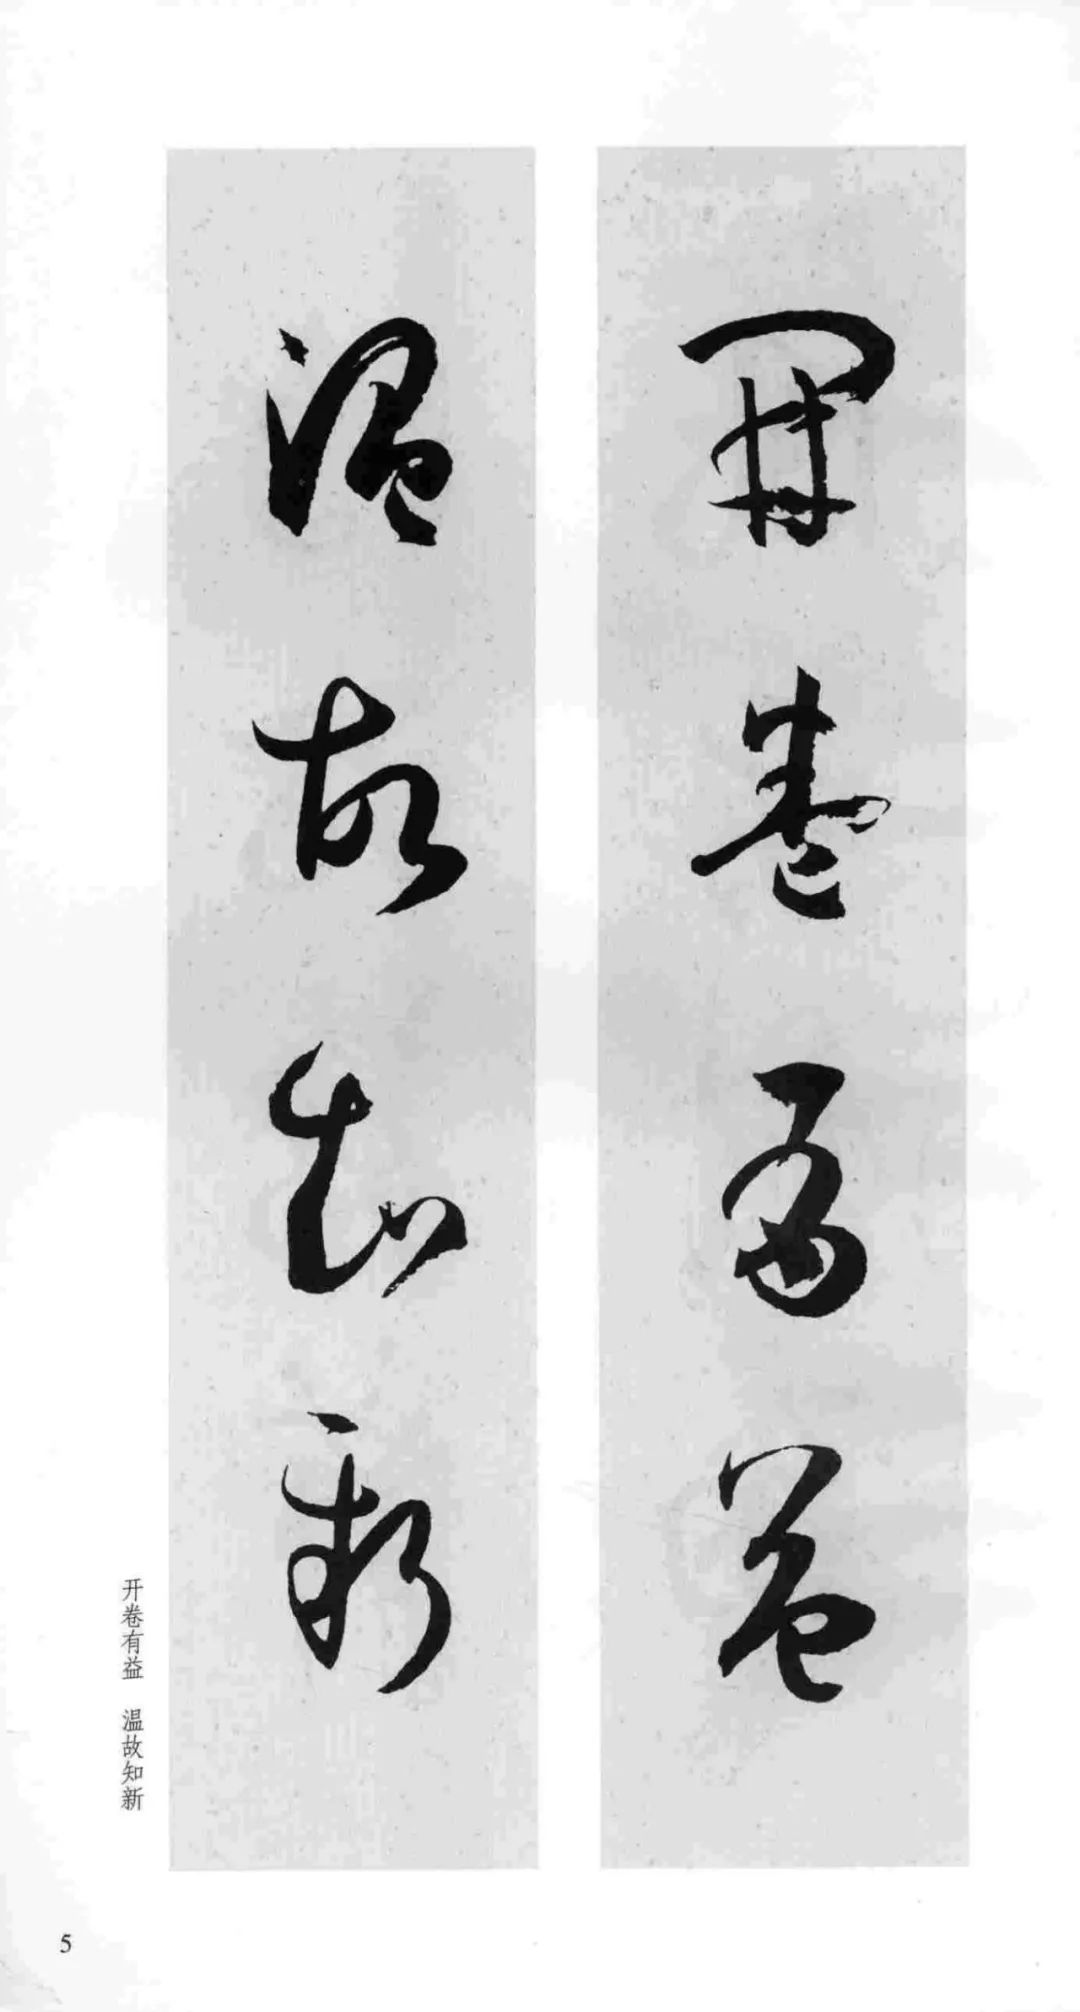 開卷有益
温故知新
开卷有益 温故知新
5